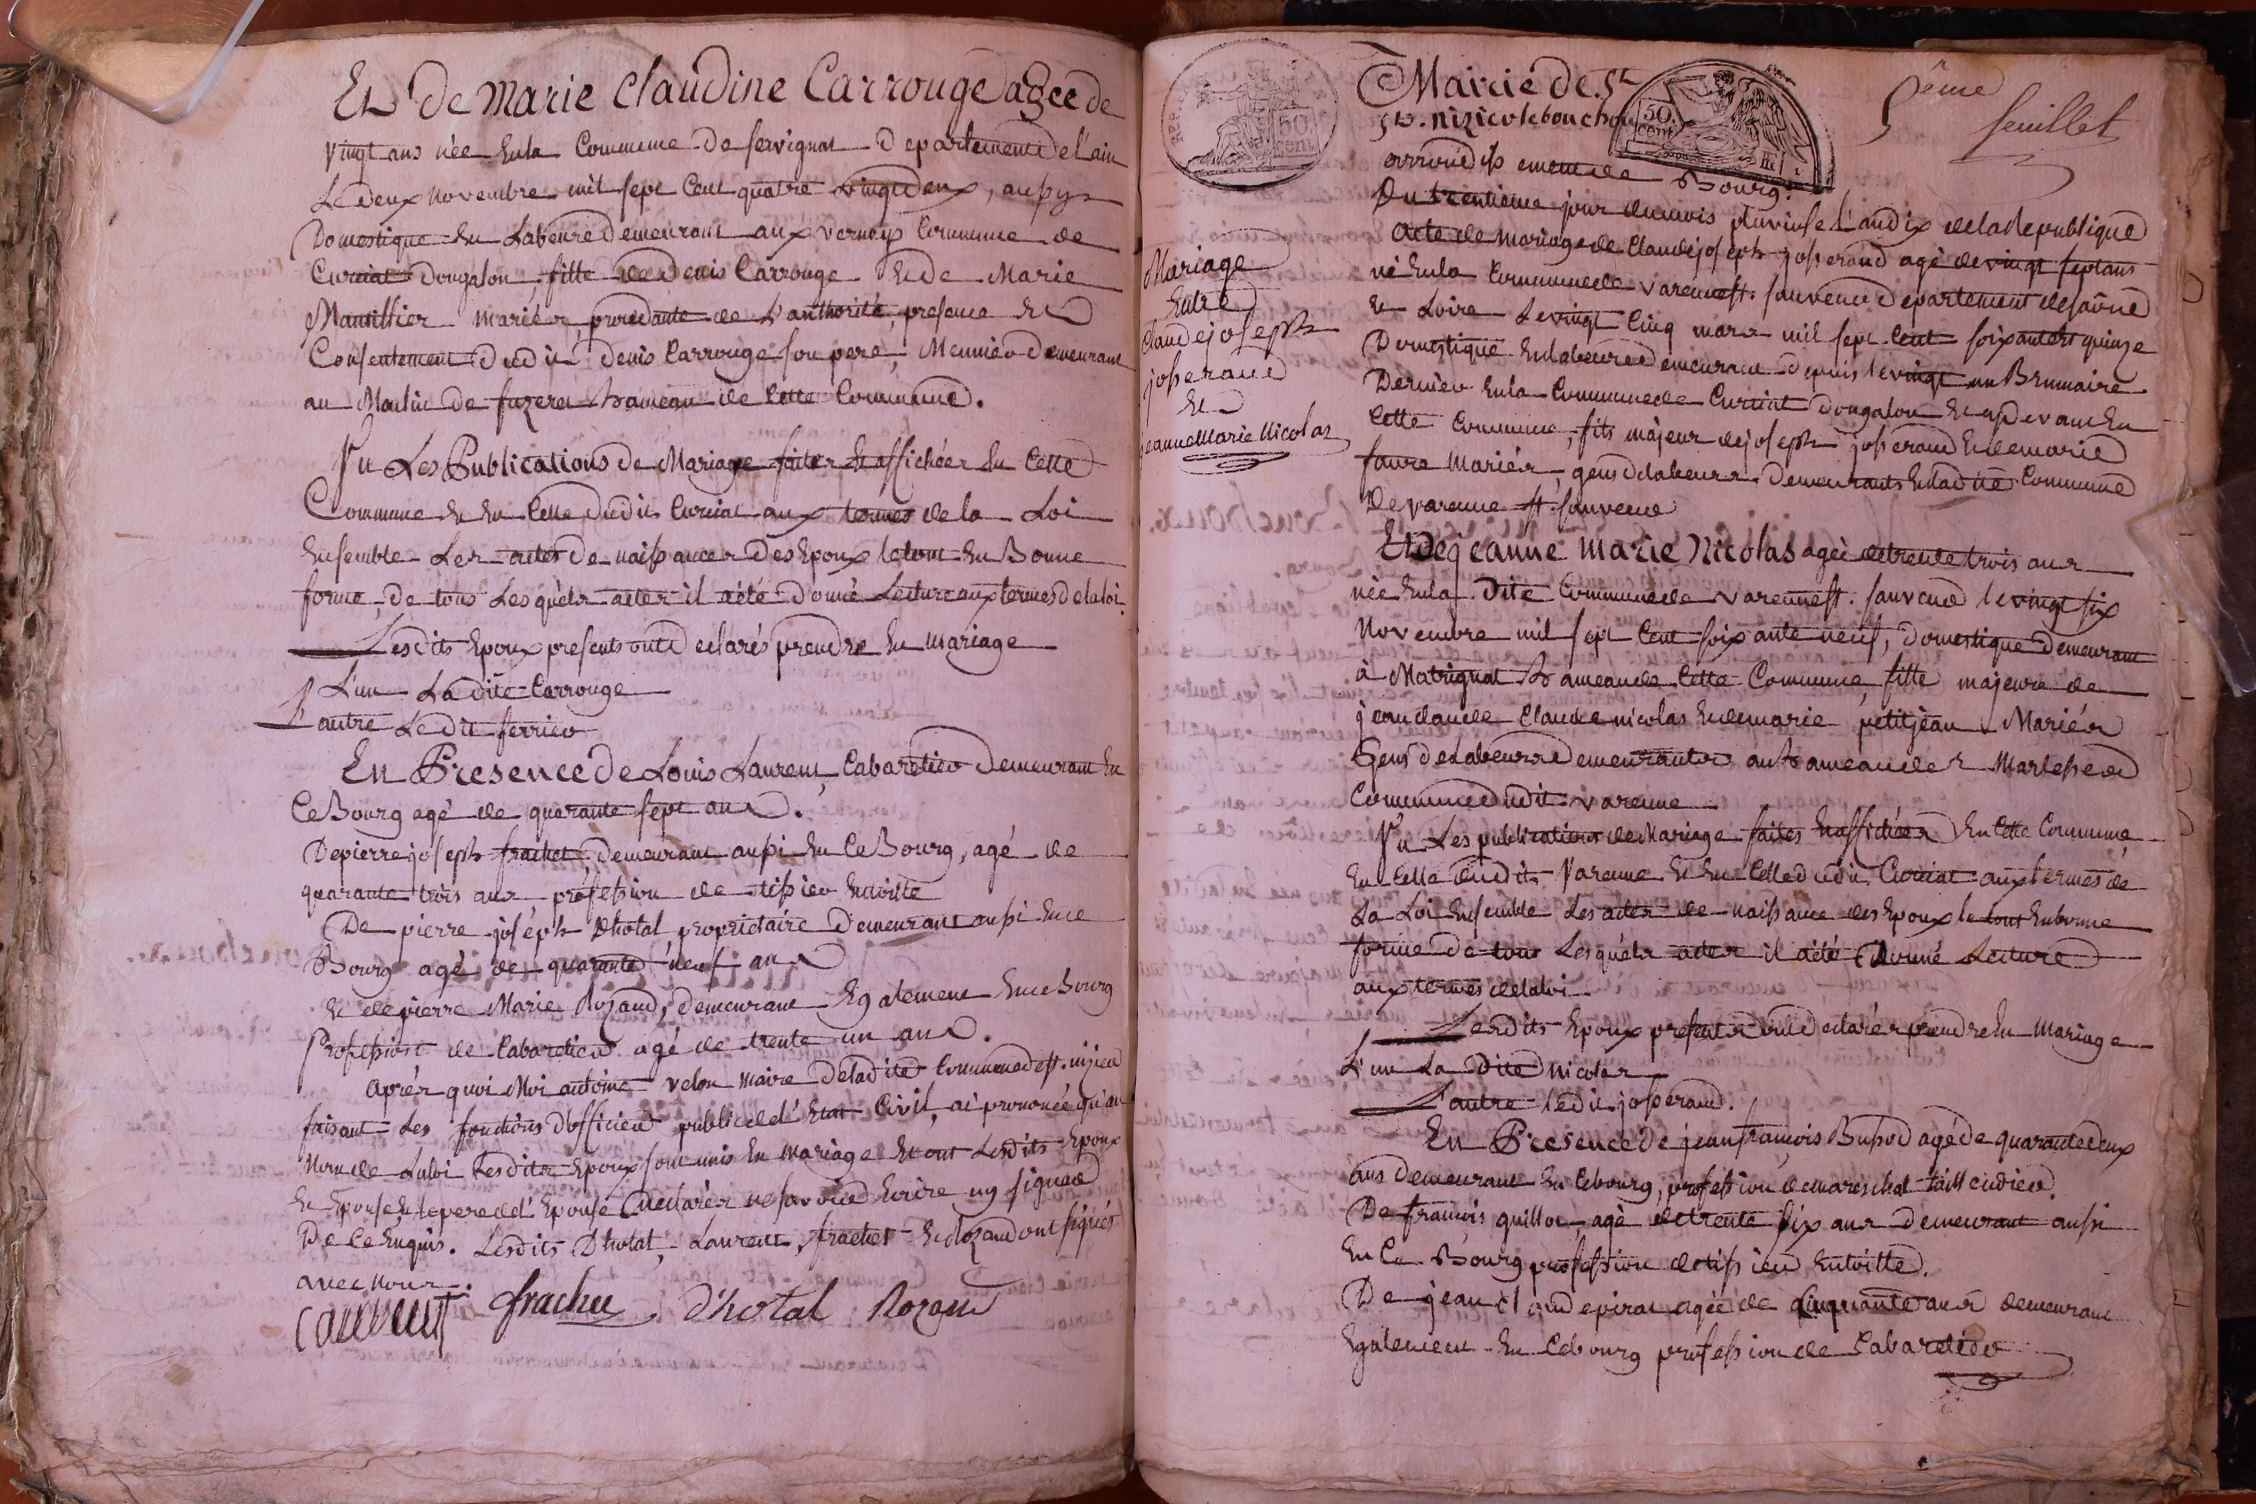 Et de Marie Claudine Carrouge agée de
vingt ans née en la Commune de servignat Departement de l'ain
Le deux novembre mil sept Cent quatre vingt deux, aussy
Domestique en Labeure Demeurant aux vernays Commune de
Curciat Dongalon, fille de Denis Carrouge Et de Marie
mariés procédante de L'authorité, presence Et
Consentement dudit Denis Carrouge son pere, Meunier Demeurant
au Moulin de hameau de Cette Commune.
Vu Les Publications de Mariage faites Et affichées En Cette
Commune Et En Celle dudit Curciat aux termes de la Loi
Ensemble Les actes de naissances des Epoux le tout En Bonne
forme, de tous Lesquels actes il a été donné Lecture aux termes de la loi.
Lesdits Epoux presents ont declarés prendre En mariage
L'un La dite Carrouge
L'autre Le dit ferrier
En Presence de Louis Laurent, Cabaretier Demeurant En
Ce Bourg agé de quarante sept ans.
De pierre joseph frachet, demeurant aussi En Ce Bourg, agé de
quarante trois ans profession de tissier Entoille
De pierre joséph Dhotal propriétaire Demeurant aussi En ce
Bourg agé de quarante neuf ans
Et de pierre Marie Rozand, demeurant Egalement En ce Bourg
Profession de Cabaretier agé de trente un ans.
Après quoi Moi antoine velon maire de ladite Commune de st. nizier
faisant Les fonctions D'officier public de l'Etat Civil, ai prononcé qu'au
Nom de La loi Lesdits Epoux sont unis En mariage Et ont Lesdits Epoux
Et Epouse Et le pere de l'Epouse Declarés ne savoir Ecrire ny signer
De Ce Enquis. Lesdits Dhotal, Laurent, frachet Et Rozand ont signés
avec nous.
Laurent frachet d'hotal Rozand
Mairie de St
St. nizier le bouchou
arrondissement de Bourg.
5ème
feuillet
50 cent
50 cent
Du trentieme jour du mois pluviose L'an dix de la Republique
Mariage
Entre
Claude joseph
josserand
Et
jeanne Marie Nicolas
Acte de Mariage de Claude joseph josserand agé de vingt sept ans
né En la Commune de varenne st. sauveur departement de saône
et Loire Le vingt Cinq mars mil sept Cent soixante et quinze
Domestique En labeure Demeurant depuis le vingt un Brumaire
Dernier En la Commune de Curciat dongalon Et cy devant En
Cette Commune, fils majeur de joseph josserand Et de marie
favre Mariés, gens de labeurs Demeurants En ladite Commune
De varenne st. sauveur
Et De jeanne Marie Nicolas agée de trente trois ans
née En la Dite Commune de varenne st. sauveur le vingt six
Novembre mil sept Cent soixante neuf, Domestique Demeurant
à Matrignat hameau de Cette Commune, fille majeure de
jean claude Claude nicolas Et de marie petitjean Mariés
Gens de Labeurre Demeurants au hameau des
Commune dudit varenne
Vu Les publications de Mariage faites Et affichées En Cette Commune,
En Celle dudit Varenne Et En Celle dudit Curciat aux termes de
La Loi Ensemble Les actes de naissance des Epoux le tout En bonne
forme de tous Lesquels actes il a été Donné Lecture
aux termes de la loi
Lesdits Epoux presents ont declarés prendre En Mariage
L'un La Dite Nicolas
L'autre ledit josserand.
En Presence de jean françois Bussod agé de quarante deux
ans Demeurant En Ce bourg, profession de mareschal taillendier.
De françois guillot, agé de trente six ans demeurant aussi
En Ce Bourg profession de tissier Entoille.
De jean Claude pirat agé de Cinquante ans demeurant
Egalement En Ce bourg profession de Cabaretier